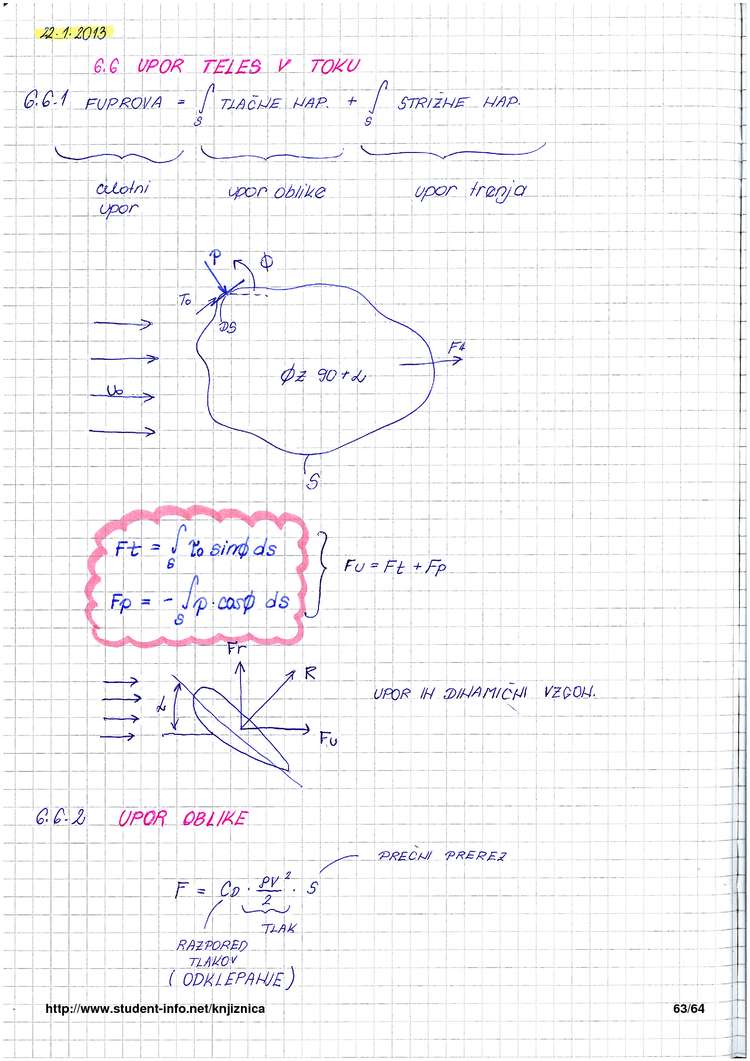 22.1.2013
6.6 UPOR TELES V TOKU
6.6.1 FUPROVA = ∫S TLAČNE NAP. + ∫S STRIŽNE NAP.
celotni upor
upor oblike
upor trenja
P
ϕ
To
DS
Uo
F4
ϕz 90+α
S
Ft = ∫S τo sinϕ ds
Fp = - ∫S p · cosϕ ds
Fu = Ft + Fp
Fr
R
α
Fu
UPOR IN DINAMIČNI VZGON.
6.6.2 UPOR OBLIKE
PREČNI PREREZ
F = CD · ρV²/2 · S
TLAK
RAZPORED
TLAKOV
(ODKLEPANJE)
http://www.student-info.net/knjiznica
63/64